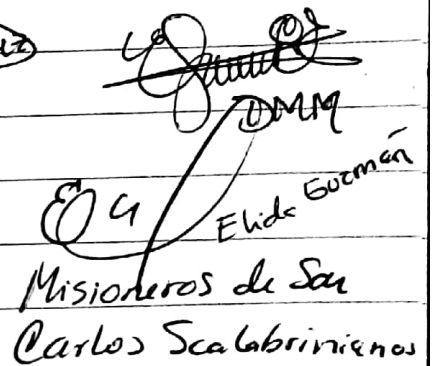 DMM
Elida Guzmán
Misioneros de San
Carlos Scalabrinianos